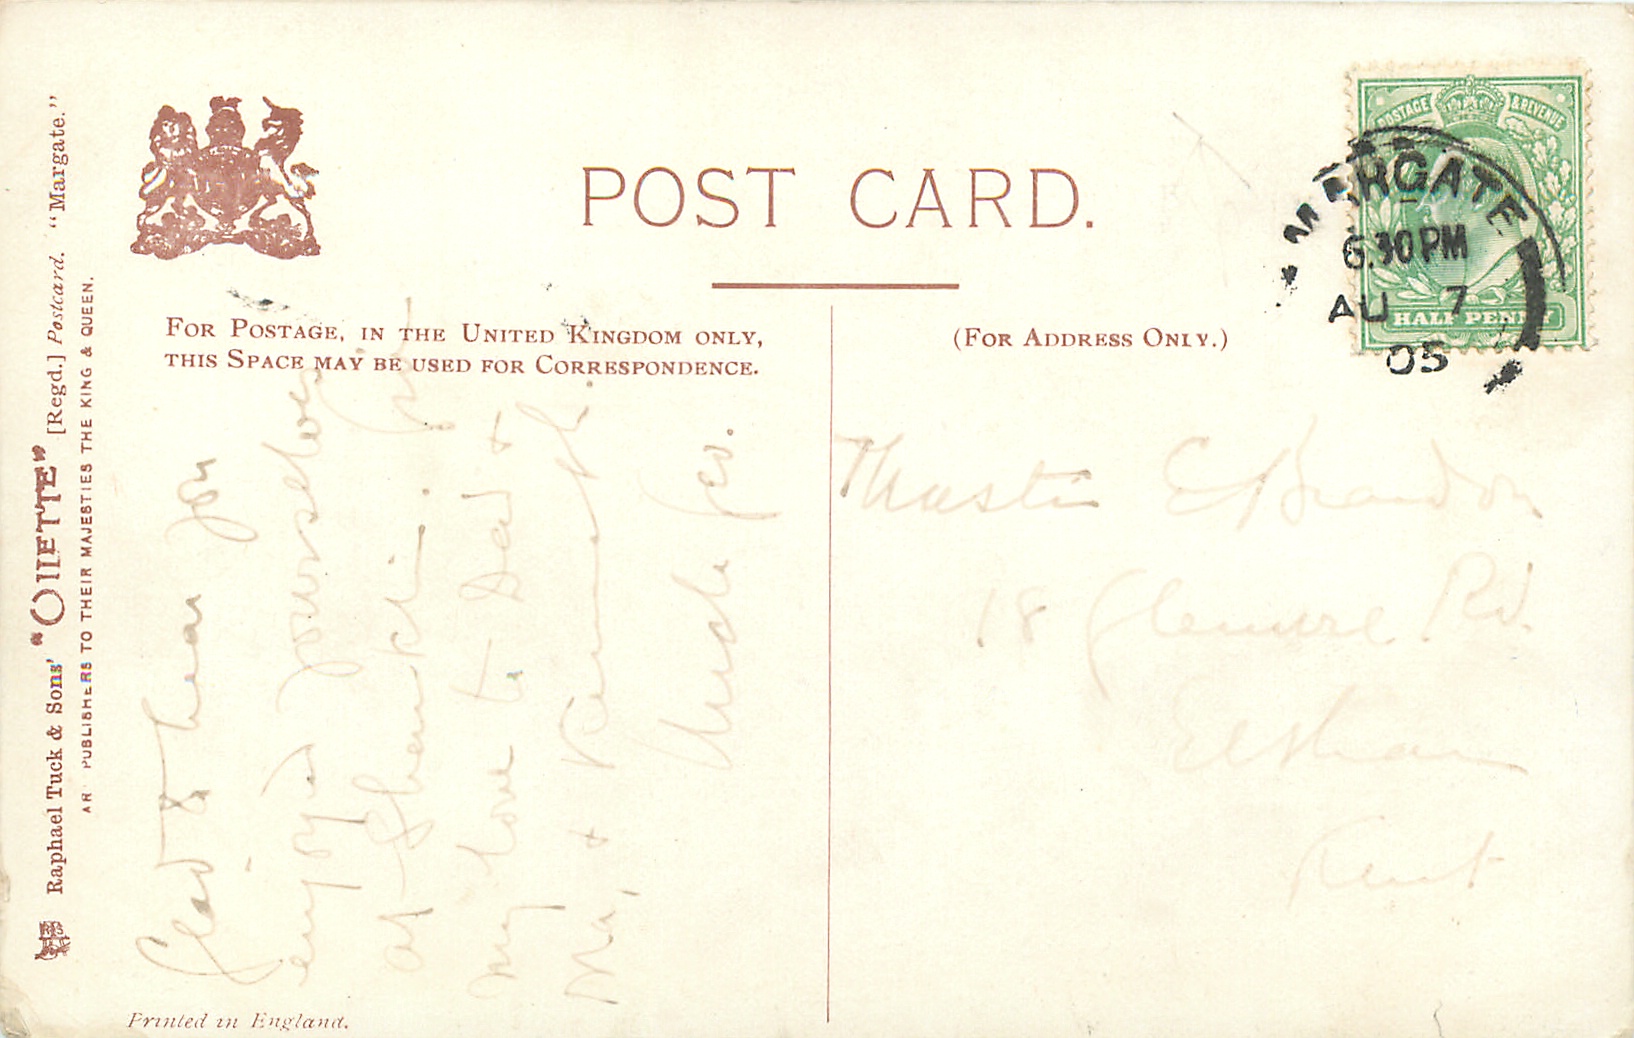 Raphael Tuck & Sons' "OILETTE" [Regd.] Postcard. "Margate."
AR PUBLISHERS TO THEIR MAJESTIES THE KING & QUEEN.
POST CARD.
FOR POSTAGE, IN THE UNITED KINGDOM ONLY,
THIS SPACE MAY BE USED FOR CORRESPONDENCE.
(FOR ADDRESS ONLY.)
POSTAGE & REVENUE
HALF PENNY
MARGATE
6.30 PM
AU 7
05
Glad to hear you
enjoyed yourselves
at
my love to Dad &
Ma, &
Uncle
Master E Brandon
18 Rd.
Eltham
Kent
Printed in England.